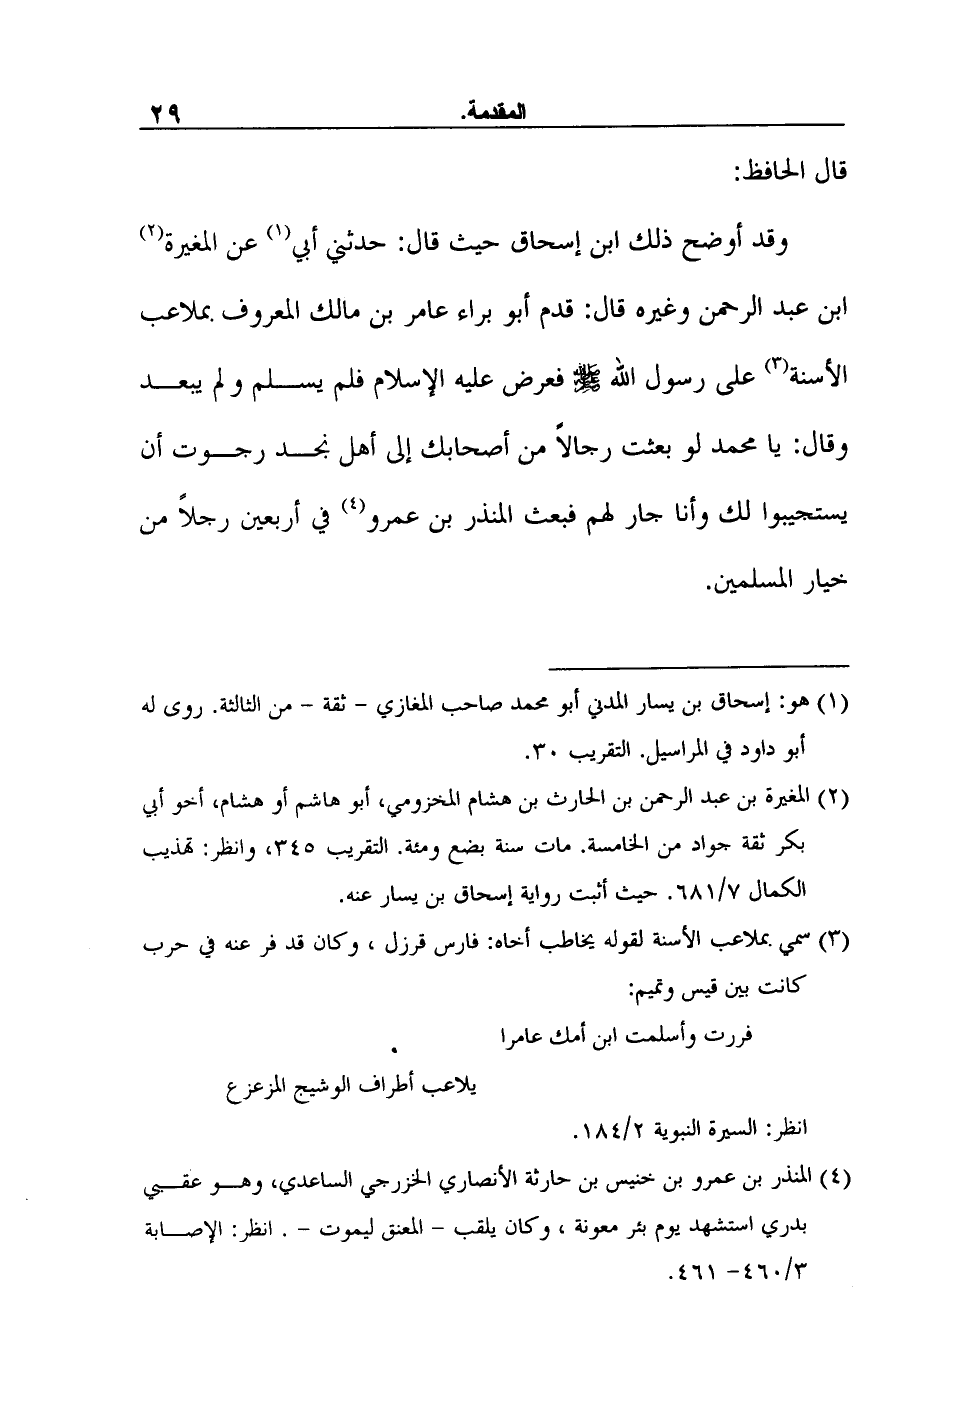 المقدمة. ٢٩
قال الحافظ:
وقد أوضح ذلك ابن إسحاق حيث قال: حدثني أبي(١) عن المغيرة(٢)
ابن عبد الرحمن وغيره قال: قدم أبو براء عامر بن مالك المعروف بملاعب
الأسنة(٣) على رسول الله ﷺ فعرض عليه الإسلام فلم يسلم و لم يبعد
وقال: يا محمد لو بعثت رجالاً من أصحابك إلى أهل نجد رجوت أن
يستجيبوا لك وأنا جار لهم فبعث المنذر بن عمرو(٤) في أربعين رجلاً من
خيار المسلمين.
(١) هو: إسحاق بن يسار المدني أبو محمد صاحب المغازي – ثقة – من الثالثة. روى له
أبو داود في المراسيل. التقريب ٣٠.
(٢) المغيرة بن عبد الرحمن بن الحارث بن هشام المخزومي، أبو هاشم أو هشام، أخو أبي
بكر ثقة جواد من الخامسة. مات سنة بضع ومئة. التقريب ٣٤٥، وانظر: تهذيب
الكمال ٦٨١/٧. حيث أثبت رواية إسحاق بن يسار عنه.
(٣) سمي بملاعب الأسنة لقوله يخاطب أخاه: فارس قرزل ، وكان قد فر عنه في حرب
كانت بين قيس وتميم:
فررت وأسلمت ابن أمك عامرا
يلاعب أطراف الوشيج المزعزع
انظر: السيرة النبوية ١٨٤/٢.
(٤) المنذر بن عمرو بن خنيس بن حارثة الأنصاري الخزرجي الساعدي، وهو عقبي
بدري استشهد يوم بئر معونة ، وكان يلقب – المعنق ليموت – . انظر: الإصابة
٤٦٠/٣– ٤٦١.